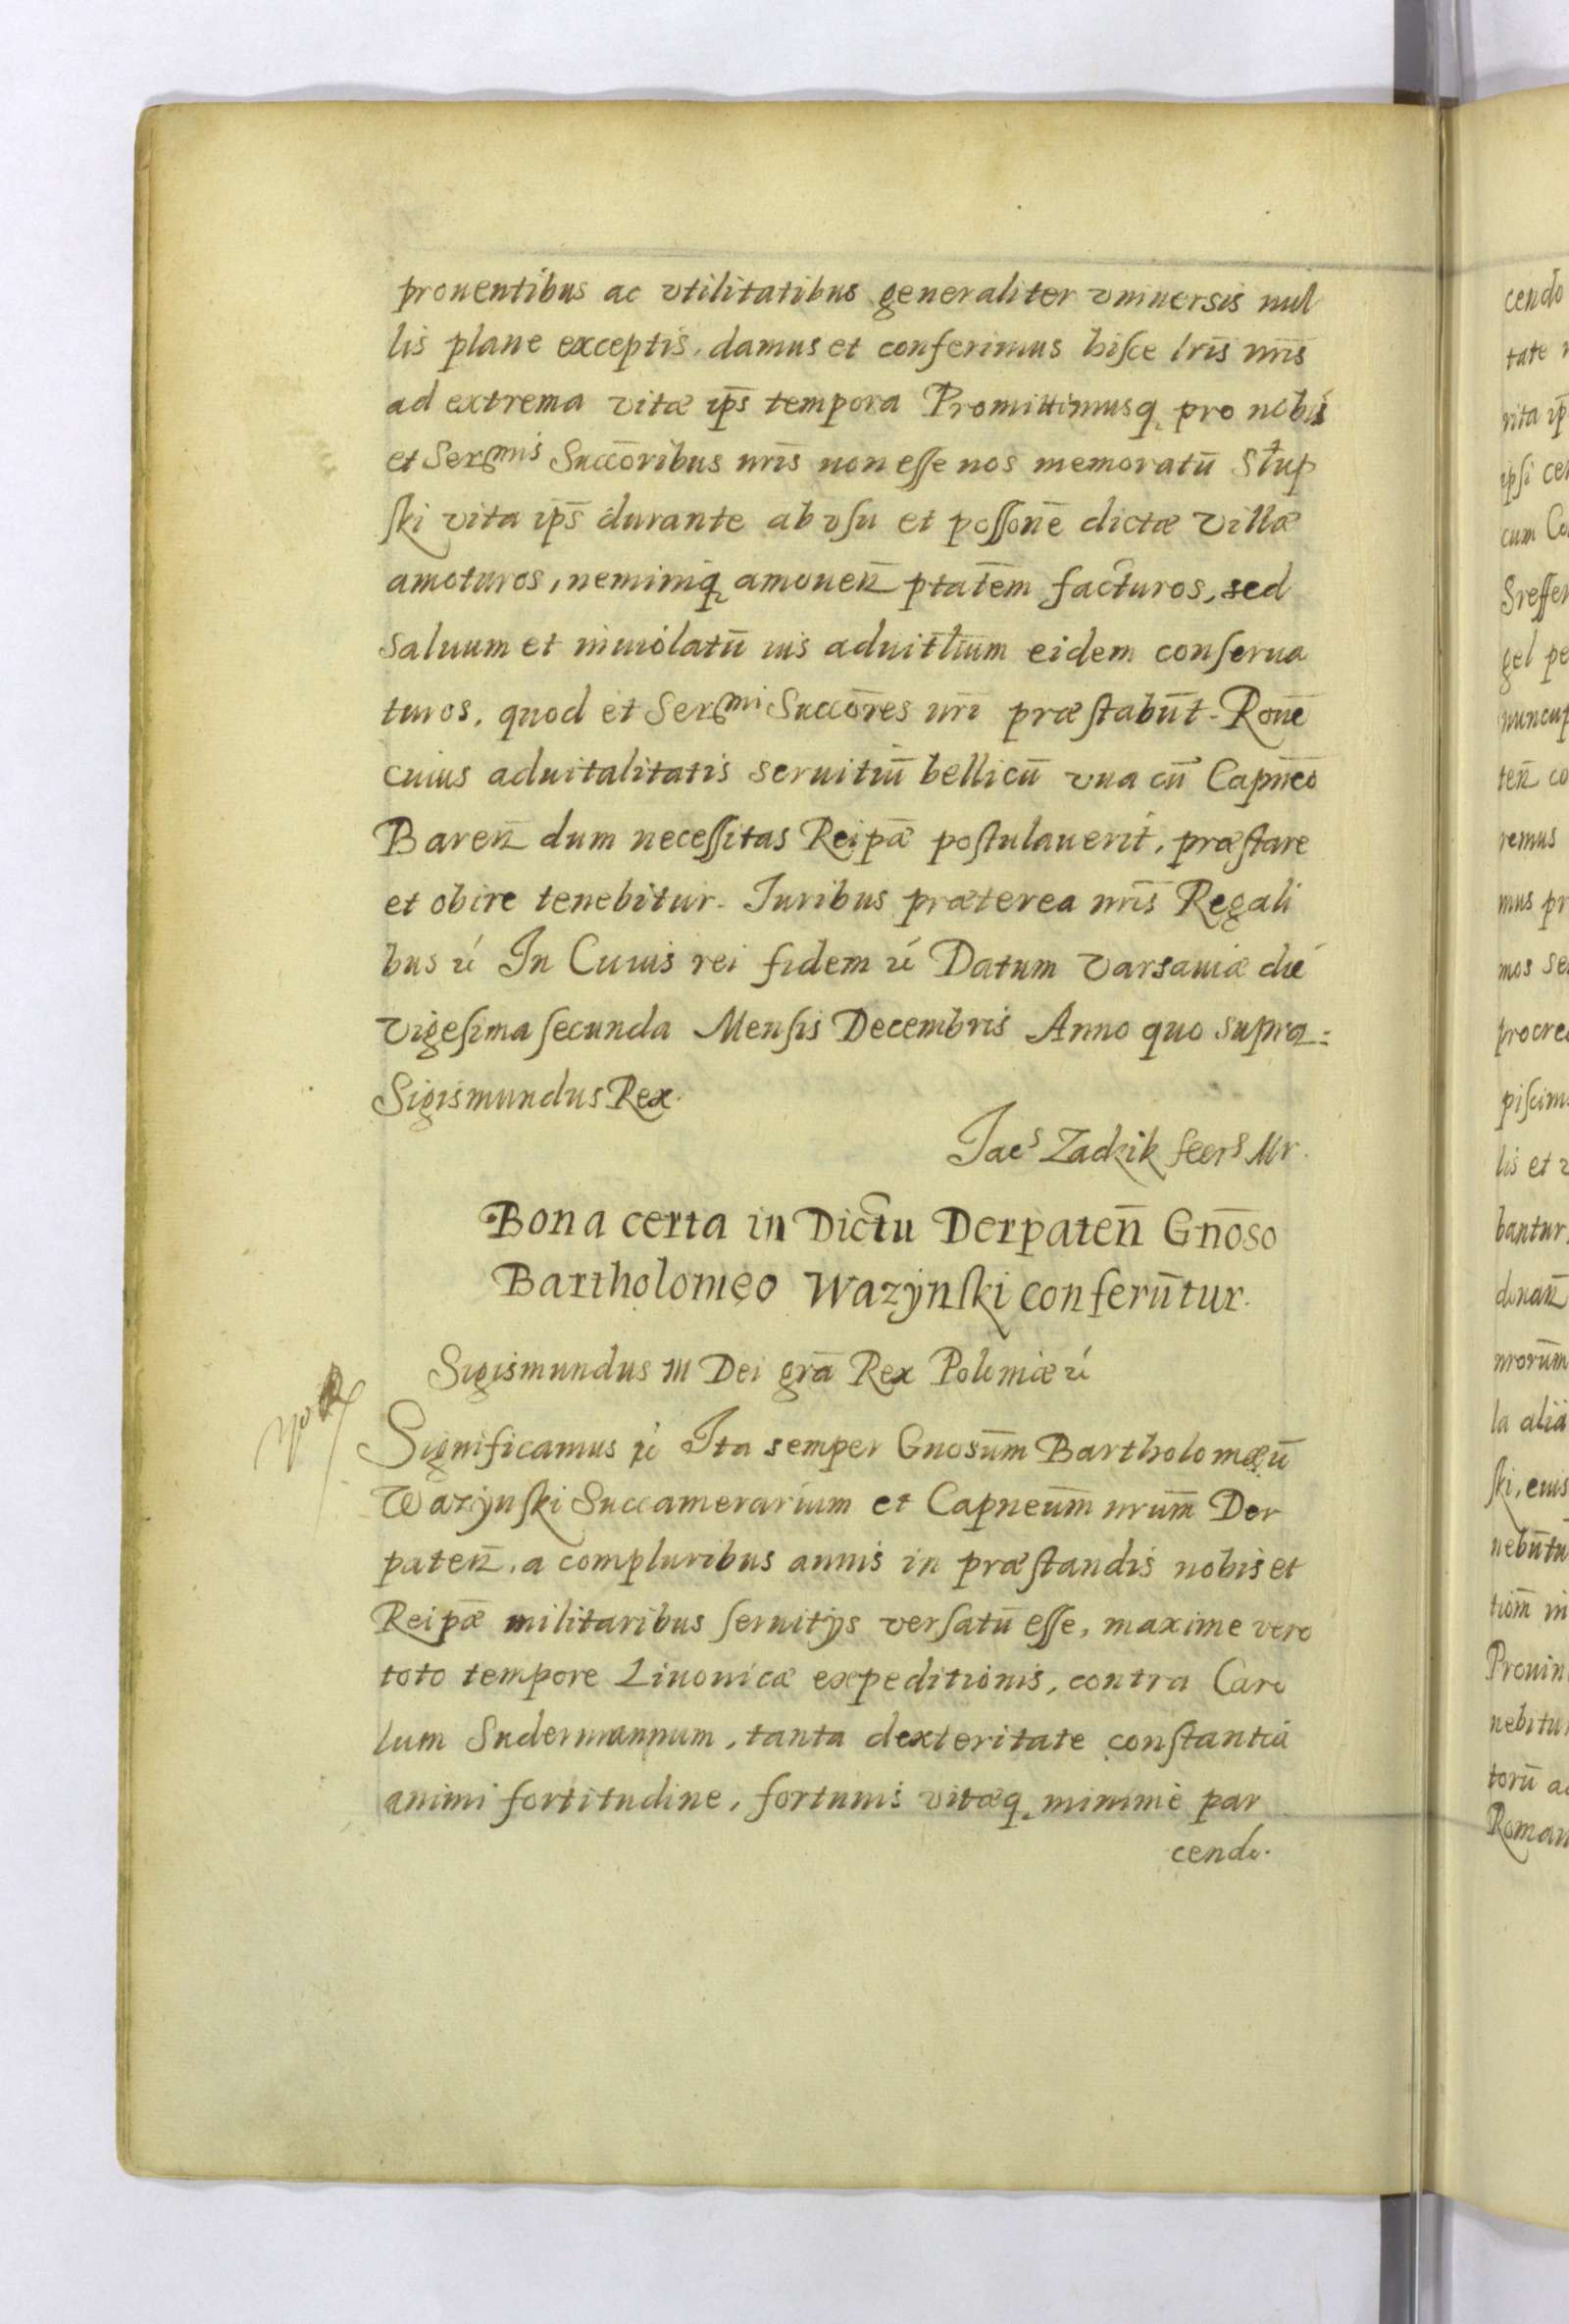 prouentibus ac vtilitatibus generaliter vniuersis nul
lis plane exceptis, damus et conferimus hiſce lrīs nrīs
ad extrema vitæ ip̄s tempora Promittimusq₃ pro nobis
et Serᵐⁱˢ Succōribus nrīs non eſſe nos memoratū Słup
ſki vita ip̄s durante ab vſu et poſſonē dictæ villæ
amoturos, neminiq₃ amouen̄ ptatēm facturos, sed
saluum et inuiolatū ius aduitłium eidem conſerua
turos, quod et Serᵐⁱ Succōres nrī præſtabūt. Ronē
cuius aduitalitatis seruitiū bellicū vna cū Capnēo
Baren̄ dum neceſſitas Reipǣ poſtulauerit, præſtare
et obire tenebitur. Iuribus præterea nrīs Regali
bus ꝛć In Cuius rei fidem ꝛć Datum Varsauiæ die
Vigeſima ſecunda Menſis Decembris Anno quo supra.:
Sigismundus Rex.
Jacˢ Zadzik ſecrˢ Mr.
Bona certa in Dictu Derpaten̄ Gnōso
Bartholomeo Wazÿnſki conferūtur.
Sigismundus III Dei grā Rex Poloniæ ꝛć
Significamus ꝛć Ita semper Gnosūm Bartholomæū
Wazÿnſki Succamerarium et Capneūm nrūm Der
paten̄, a compluribus annis in præſtandis nobis et
Reipǣ militaribus ſeruitÿs verſatū eſſe, maxime vero
toto tempore Liuonicæ expeditionis, contra Caro
lum Sudermannum, tanta dexteritate conſtantia
animi fortitudine, fortunis vitæq₃ minime par
cendo.